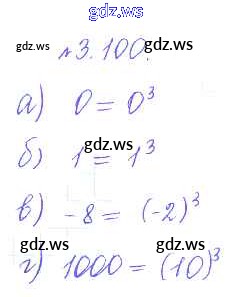 gdz.ws
gdz.ws №3.100. gdz.ws
а) 0 = 0³
б) gdz.ws 1 = 1³
в) -8 = (-2)³
gdz.ws gdz.ws
г) 1000 = (10)³